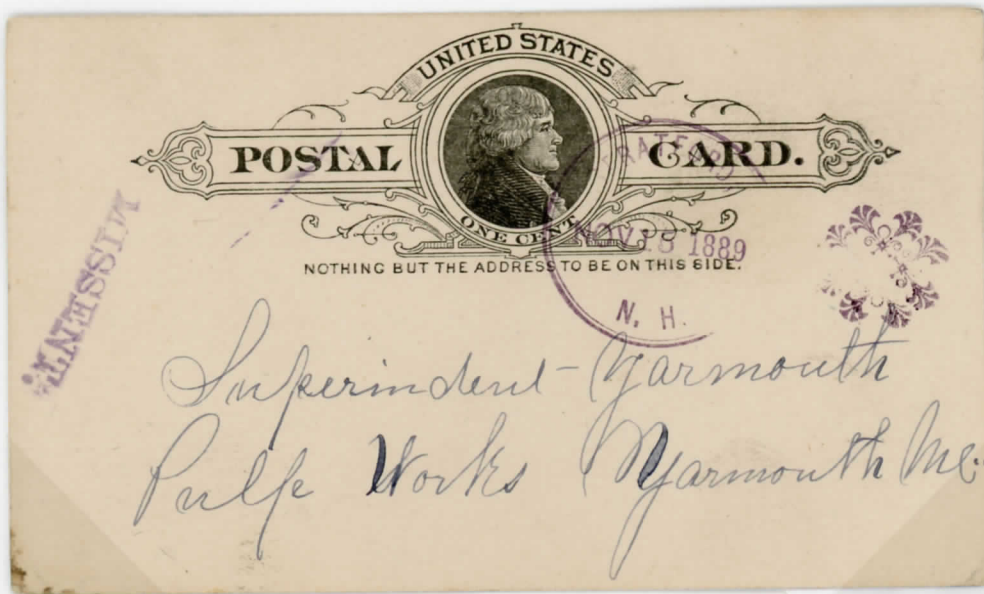 UNITED STATES
POSTAL CARD.
ONE CENT
NOTHING BUT THE ADDRESS TO BE ON THIS SIDE.
NOV 18 1889
N. H.
MISSENT
Superindent - Yarmouth
Pulp Works Yarmouth Me.